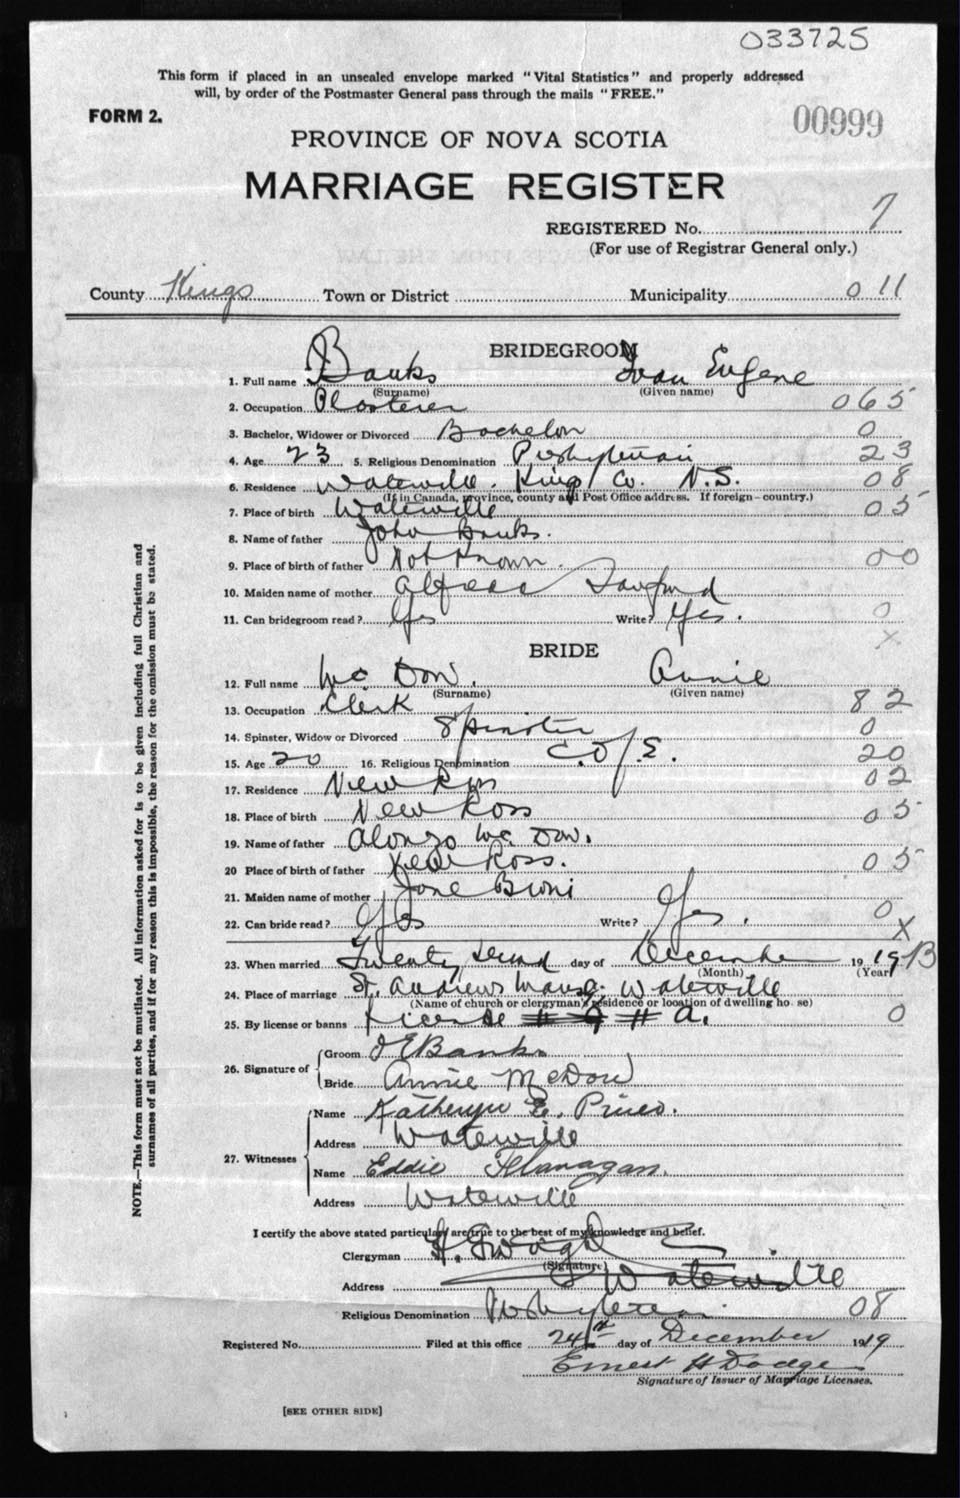 033725
This form if placed in an unsealed envelope marked "Vital Statistics" and properly addressed
will, by order of the Postmaster General pass through the mails "FREE."
FORM 2.
00999
PROVINCE OF NOVA SCOTIA
MARRIAGE REGISTER
REGISTERED No. 7
(For use of Registrar General only.)
County Kings Town or District Municipality 0 11
BRIDEGROOM
1. Full name Banks Ivan Eugene
(Surname) (Given name)
2. Occupation Plasterer 065
3. Bachelor, Widower or Divorced Bachelor 0
4. Age 23 5. Religious Denomination Presbyterian 23
6. Residence Waterville. Kings Co. N.S. 08
(If in Canada, province, county and Post Office address. If foreign—country.)
7. Place of birth Waterville 05
8. Name of father John Banks.
9. Place of birth of father Not Known. 00
10. Maiden name of mother Sanford
11. Can bridegroom read? Yes Write? Yes. 0
X
BRIDE
12. Full name Mc Dow. Annie
(Surname) (Given name)
13. Occupation Clerk 82
14. Spinster, Widow or Divorced Spinster 0
15. Age 20 16. Religious Denomination C. of E. 20
17. Residence New Ross 02
18. Place of birth New Ross 05
19. Name of father Alonzo Mc Dow.
20 Place of birth of father New Ross. 05
21. Maiden name of mother Jane
22. Can bride read? Yes Write? Yes. 0
X
23. When married Twenty second day of December 19 19 B
(Month) (Year)
24. Place of marriage St. Andrews Manse, Waterville
(Name of church or clergyman's residence or location of dwelling house)
25. By license or banns License # A. 0
26. Signature of Groom I E Banks
Bride Annie McDow
27. Witnesses Name Katheryn E. Pineo.
Address Waterville
Name Eddie Flanagan.
Address Waterville
I certify the above stated particulars are true to the best of my knowledge and belief.
Clergyman
(Signature)
Address Waterville
Religious Denomination Presbyterian 08
Registered No. Filed at this office 24th day of December 1919
Ernest H Dodge
Signature of Issuer of Marriage Licenses.
[SEE OTHER SIDE]
NOTE.—This form must not be mutilated. All information asked for is to be given including full Christian and
surnames of all parties, and if for any reason this is impossible, the reason for the omission must be stated.